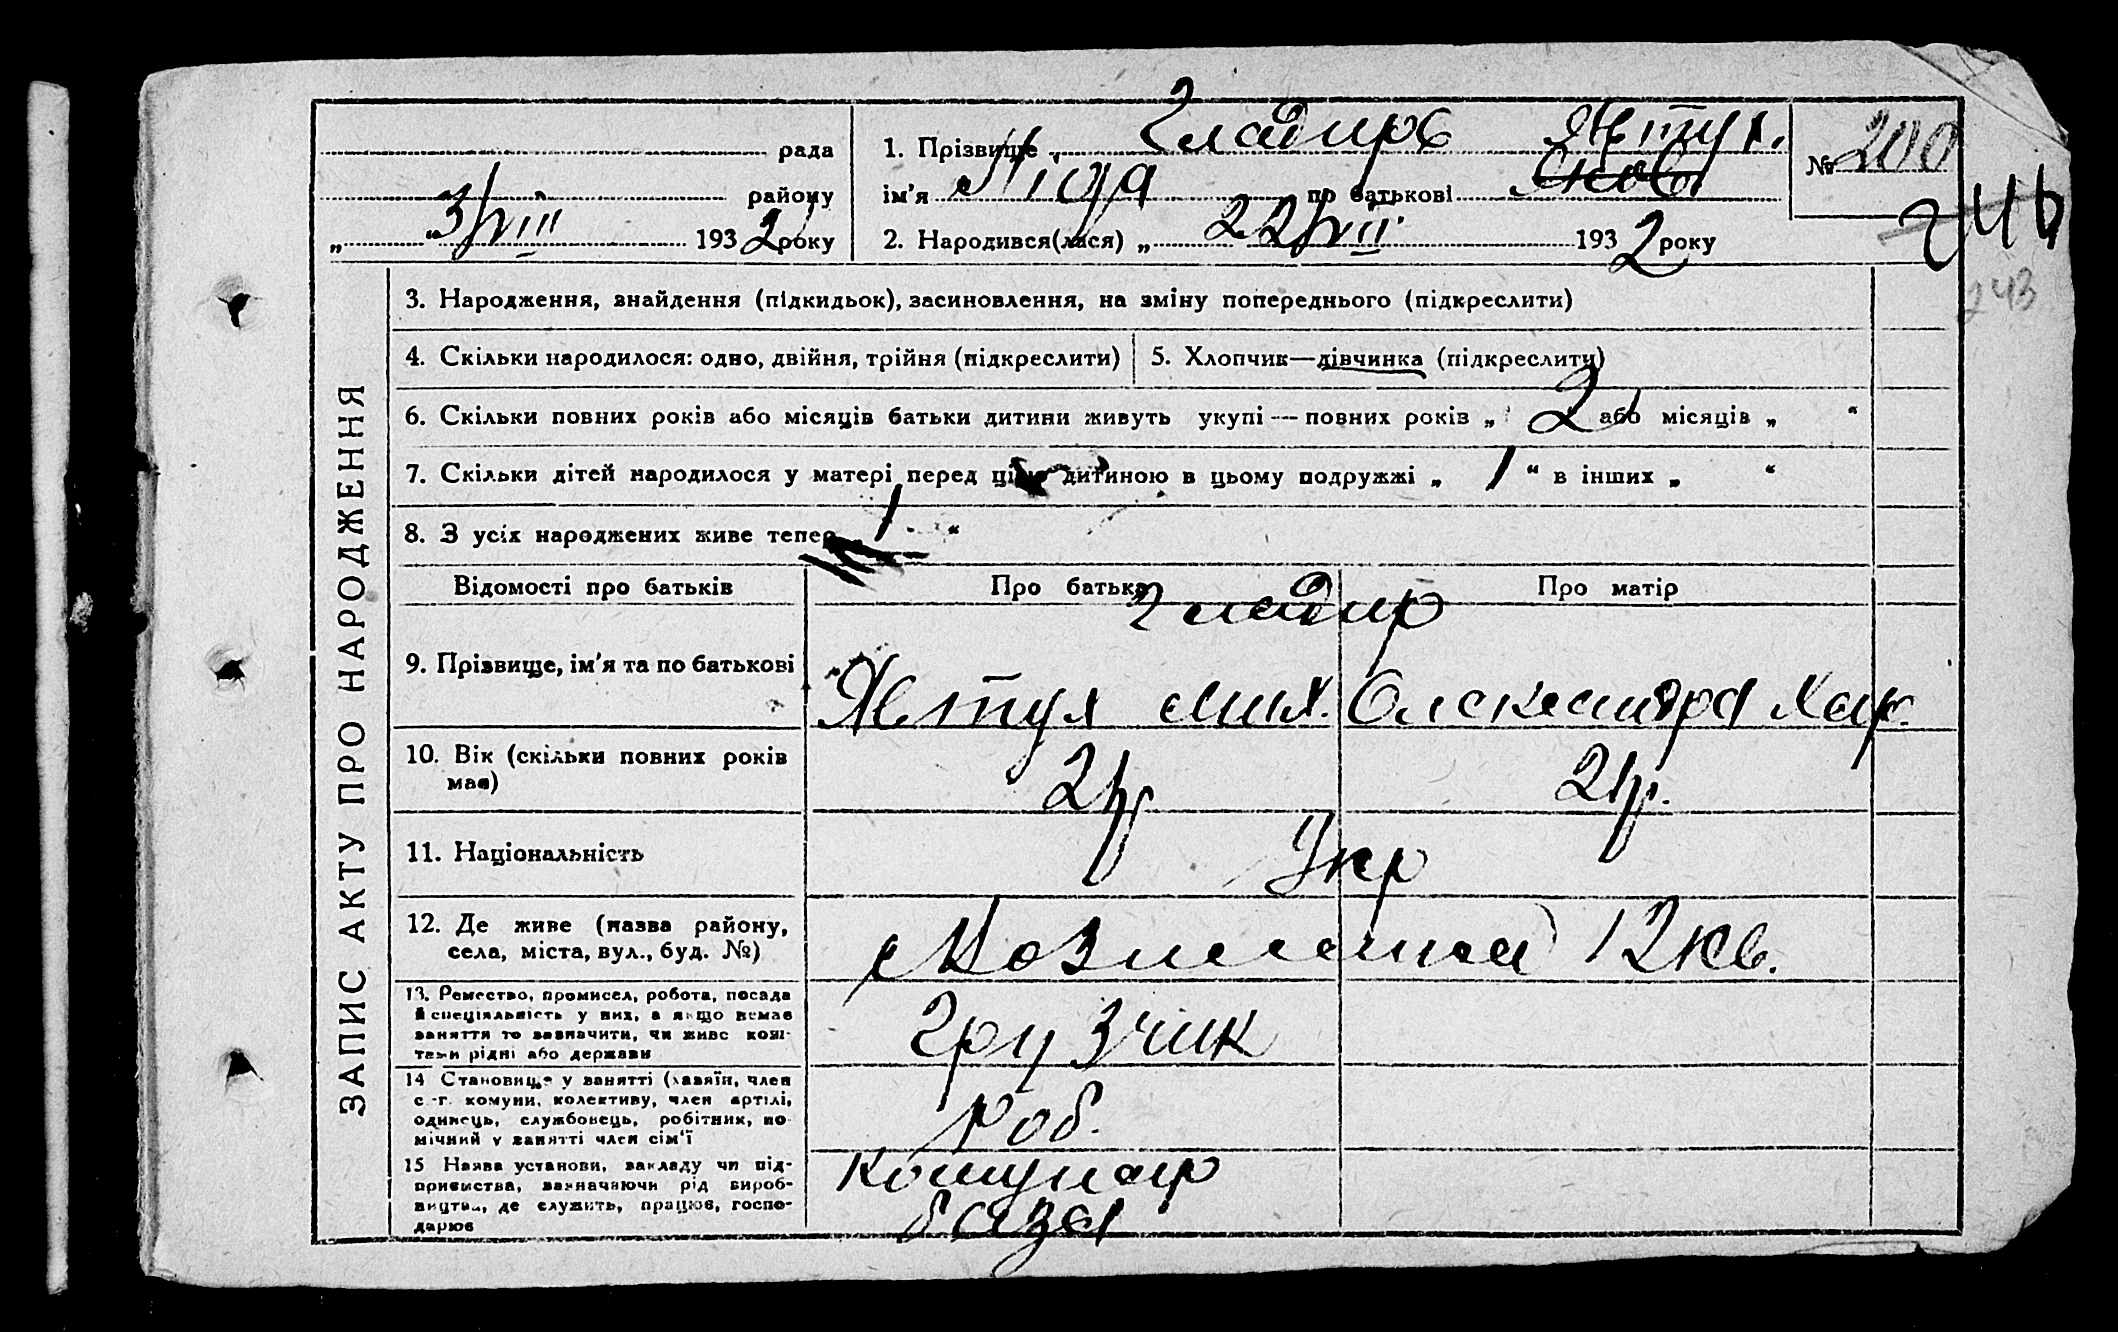 рада
району
„ “ 3/VIII 1932 року
1. Прізвище Гладирь Явтух.
ім'я Ніда по батькові
2. Народився(лася) „ 22/VII 1932 року
№ 200
246
243
ЗАПИС АКТУ ПРО НАРОДЖЕННЯ
3. Народження, знайдення (підкидьок), засиновлення, на зміну попереднього (підкреслити)
4. Скільки народилося: одно, двійня, трійня (підкреслити)
5. Хлопчик—дівчинка (підкреслити)
6. Скільки повних років або місяців батьки дитини живуть укупі — повних років „ 2 або місяців „ “
7. Скільки дітей народилося у матері перед цією дитиною в цьому подружжі „ 1 “ в інших „ “
8. З усіх народжених живе тепер „ 1 “
Відомості про батьків
Про батька
Про матір
Гладир
9. Прізвище, ім'я та по батькові
Явтух Мих.
Олександра Хар.
10. Вік (скільки повних років
має)
21р
21р.
11. Національність
Укр
12. Де живе (назва району,
села, міста, вул., буд. №)
12 кв.
13. Ремество, промисел, робота, посада
й спеціяльність у них, а якщо немає
заняття то зазначити, чи живе кош-
тами рідні або держави
Грузчик
14 Становище у занятті (хазяїн, член
с.-г. комуни, колективу, член артілі,
одинець, службовець, робітник, по-
мічний у занятті член сім'ї
Роб.
15 Назва установи, закладу чи під-
приємства, зазначаючи рід вироб-
ництва, де служить, працює, госпо-
дарює
Комунар
база